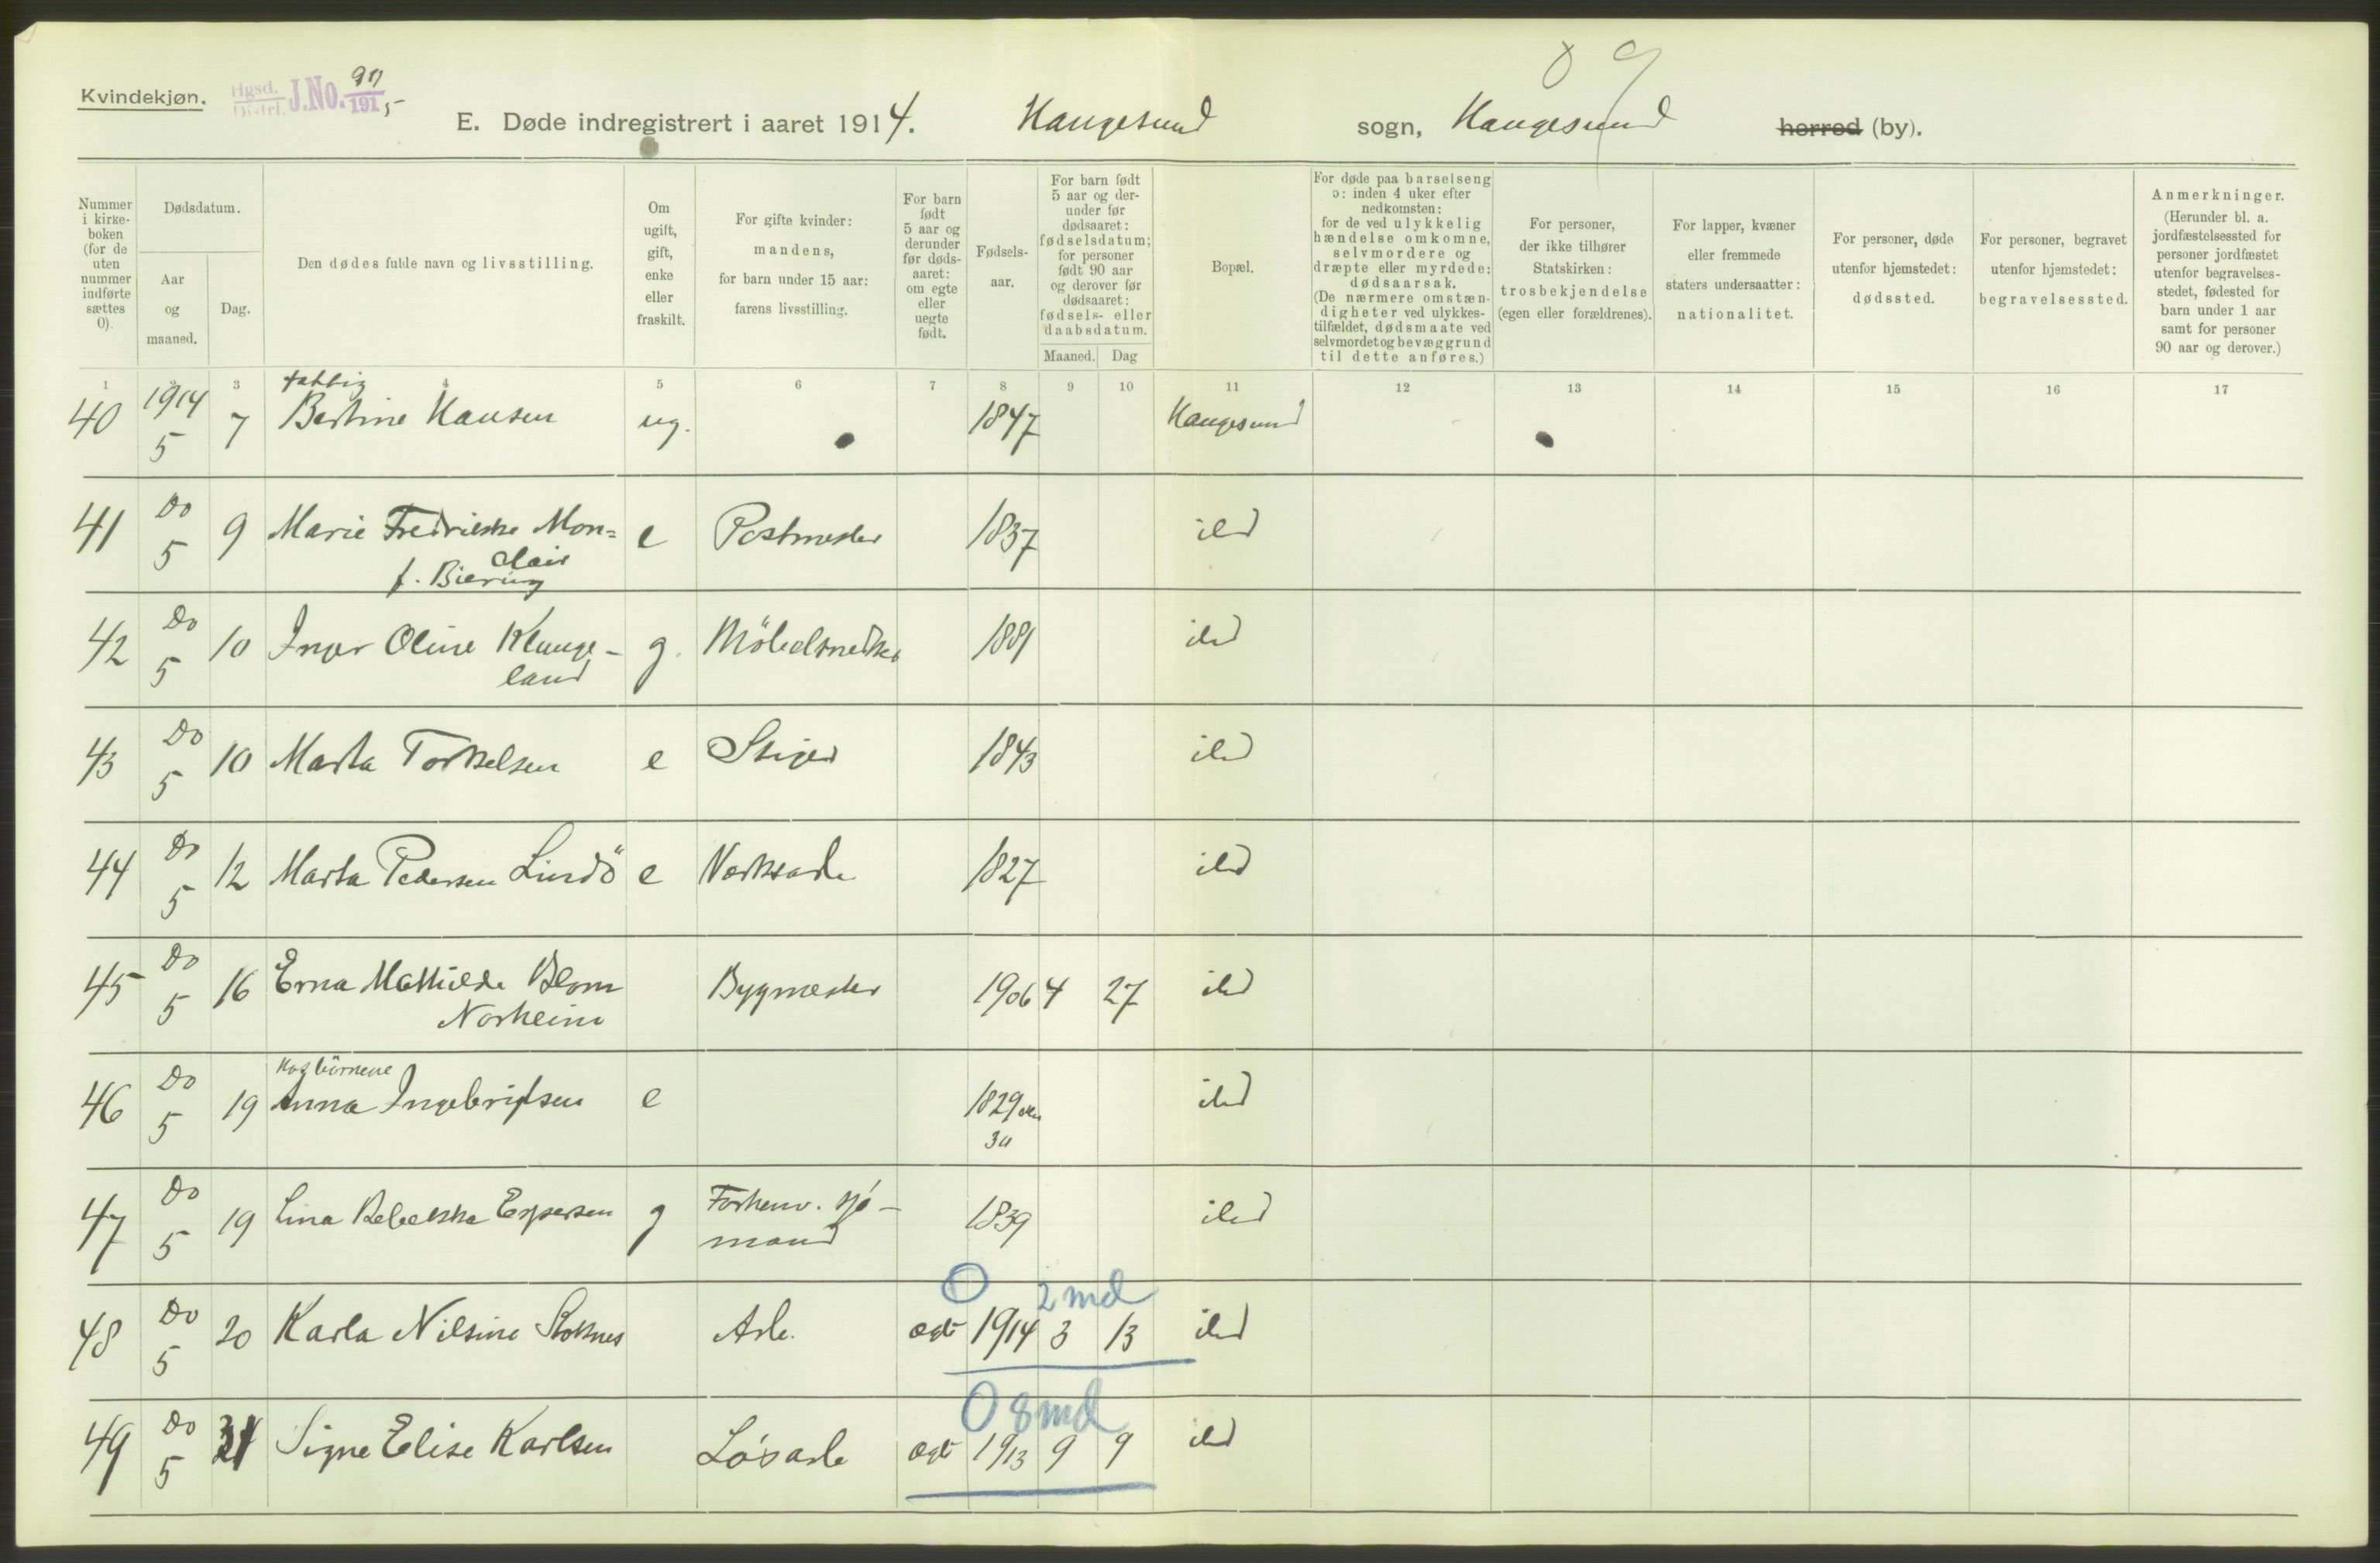 Kvindekjøn.
Hgsd. Distrl. J.No. 90/1915
E. Døde indregistrert i aaret 1914. Haugesund sogn, Haugesund herred (by).
Nummer i kirke-
boken
(for de
uten
nummer
indførte
sættes
0).
Dødsdatum.
Aar
og
maaned.
Dag.
Den dødes fulde navn og livsstilling.
Om
ugift,
gift,
enke
eller
fraskilt.
For gifte kvinder:
mandens,
for barn under 15 aar:
farens livsstilling.
For barn
født
5 aar og
derunder
før døds-
aaret:
om egte
eller
uegte
født.
Fødsels-
aar.
For barn født
5 aar og der-
under før
dødsaaret:
fødselsdatum;
for personer
født 90 aar
og derover før
dødsaaret:
fødsels- eller
daabsdatum.
Maaned. Dag
Bopæl.
For døde paa barselseng
ɔ: inden 4 uker efter
nedkomsten;
for de ved ulykkelig
hændelse omkomne,
selvmordere og
dræpte eller myrdede:
dødsaarsak.
(De nærmere omstæn-
digheter ved ulykkes-
tilfældet, dødsmaate ved
selvmordet og bevæggrund
til dette anføres.)
For personer,
der ikke tilhører
Statskirken:
trosbekjendelse
(egen eller forældrenes).
For lapper, kvæner
eller fremmede
staters undersaatter:
nationalitet.
For personer, døde
utenfor hjemstedet:
dødssted.
For personer, begravet
utenfor hjemstedet:
begravelsessted.
Anmerkninger.
(Herunder bl. a.
jordfæstelsessted for
personer jordfæstet
utenfor begravelses-
stedet, fødested for
barn under 1 aar
samt for personer
90 aar og derover.)
1 2 3 4 5 6 7 8 9 10 11 12 13 14 15 16 17
40 1914 5 7 fattig Bertine Hansen ug. 1847 Haugesund
41 Do 5 9 Marie Fredrikke Mon=
clair
f. Biering e Postmester 1837 ibd
42 Do 5 10 Inger Oline Klunge-
land g. Møbelsnedker 1881 ibd
43 Do 5 10 Marta Torkelsen e Stiger 1843 ibd
44 Do 5 12 Marta Pedersen Lindö e Verksarb. 1827 ibd
45 Do 5 16 Erna Mathilde Blom
Norheim Bygmester 1906 4 27 ibd
46 Do 5 19 Anna Ingebrigtsen e 1829 eller
30 ibd
47 Do 5 19 Lina Rebekka Espersen g Forhenv. sjø-
mand 1839 ibd
0 2 md
48 Do 5 20 Karla Nilsine Stoknes Arb. egte 1914 3 13 ibd
0 8 md
49 Do 5 Signe Elise Karlsen Løsarb egte 1913 9 9 ibd